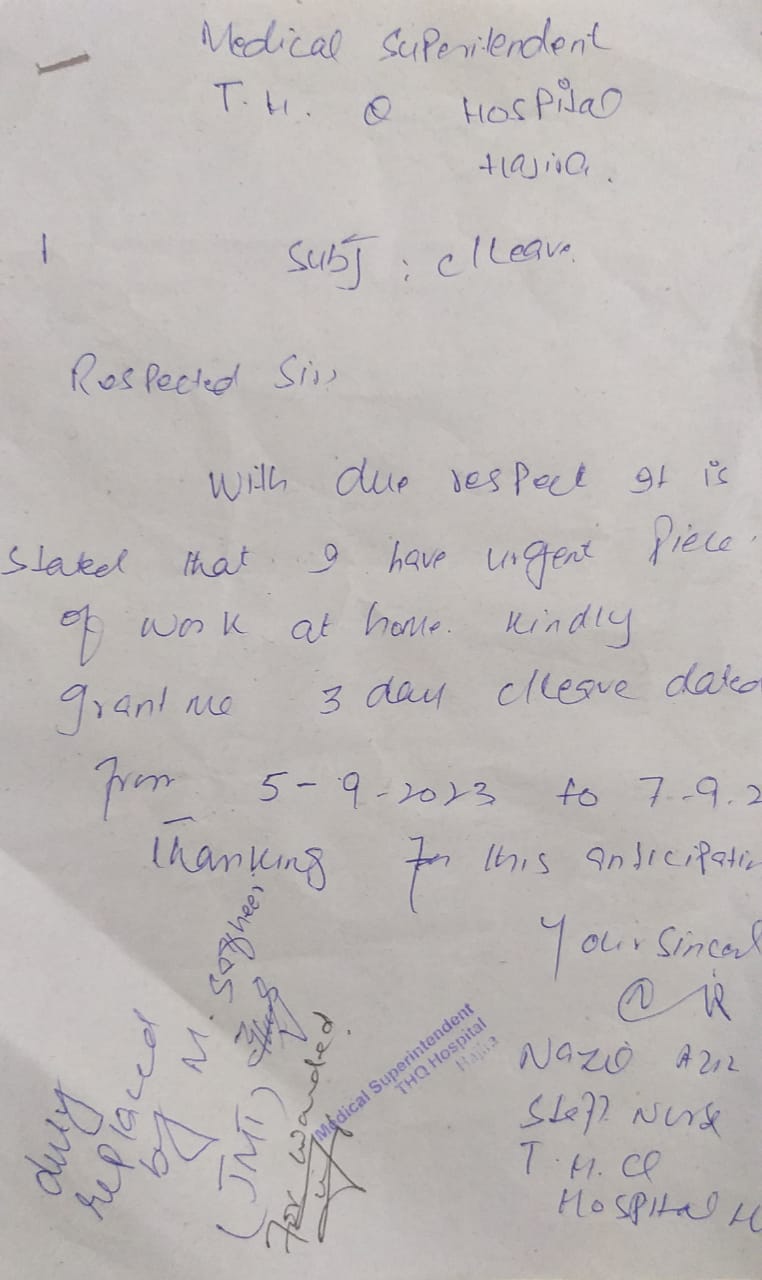 Medical Superitendent
T.H. Q Hospital
Hajira.
Subj : c/leave.
Respected Sir,
With due respect It is
stated that I have urgent Piece
of work at home. Kindly
grant me 3 day c/leave dated
from 5-9-2023 to 7-9.2
Thanking for this anticipatin
Your Sincerl
Nazo Aziz
Staff Nurse
T.H.Q
Hospital H
duty
replaced
by M. Sagheer
(JMT)
Forwarded.
Medical Superintendent
THQ Hospital
Hajira